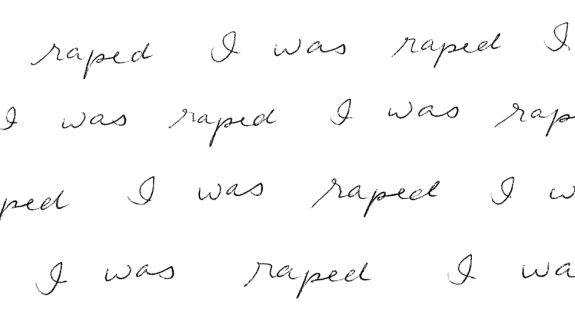 raped I was raped I
I was raped I was rap
ped I was raped I w
I was raped I wa